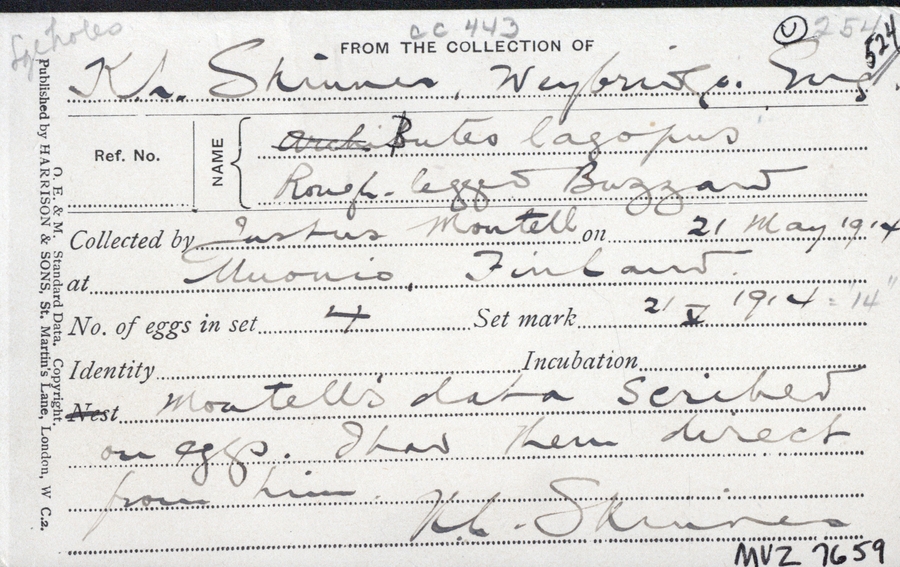 CC 443
254
524
Egeholes
FROM THE COLLECTION OF
K.L. Skinner, Weybridge. Eng.
Ref. No.
NAME
Archi Buteo lagopus
Rough-legged Buzzard
Collected by Justus Montell on 21 May 1914
at Muonio, Finland.
No. of eggs in set 4 Set mark 21 V 1914 = "14"
Identity Incubation
Nest Montell's data scribed
on eggs. I had them direct
from him. K.L. Skinner
MVZ 7659
O. E. & M. Standard Data. Copyright.
Published by HARRISON & SONS, St. Martin's Lane, London, W C.2.